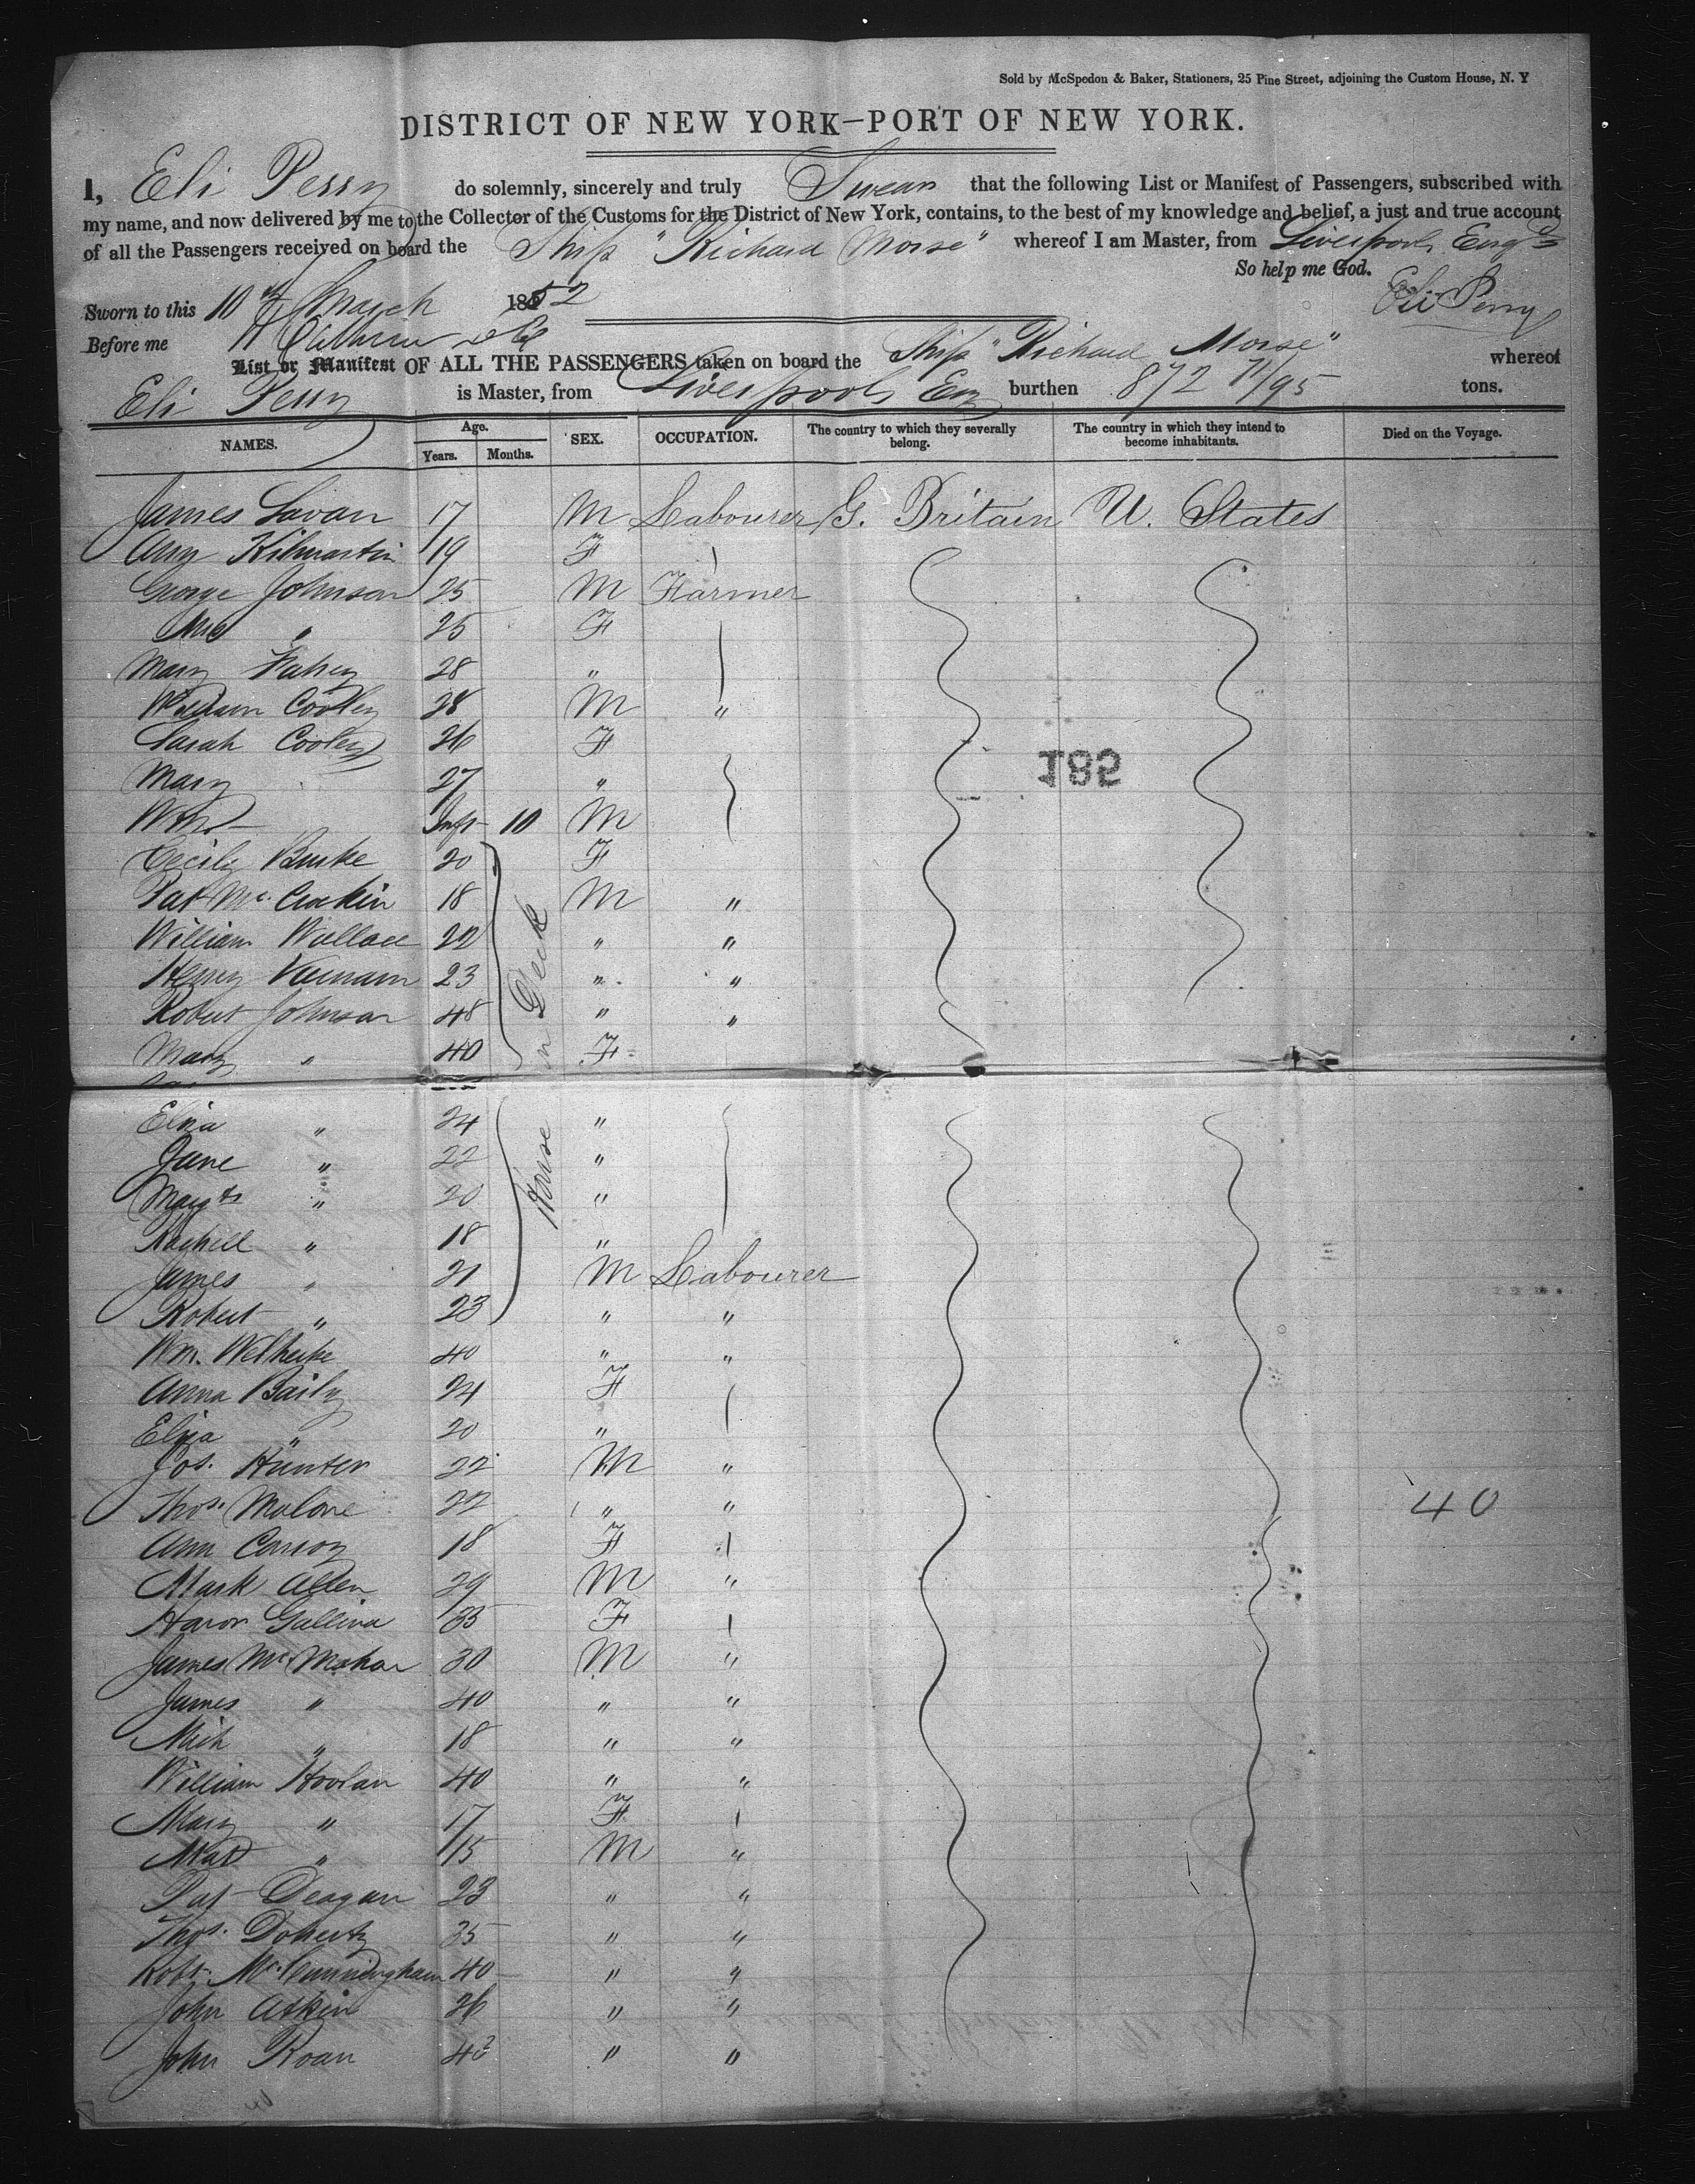 Sold by McSpedon & Baker, Stationers, 25 Pine Street, adjoining the Custom House, N. Y
DISTRICT OF NEW YORK—PORT OF NEW YORK.
I, Eli Perry do solemnly, sincerely and truly Swear that the following List or Manifest of Passengers, subscribed with
my name, and now delivered by me to the Collector of the Customs for the District of New York, contains, to the best of my knowledge and belief, a just and true account
of all the Passengers received on board the Ship "Richard Morse" whereof I am Master, from Liverpool, Engd
So help me God.
Sworn to this 10th March 1852 Eli Perry
Before me
List or Manifest OF ALL THE PASSENGERS taken on board the Ship "Richard Morse" whereof
Eli Perry is Master, from Liverpool, Eng burthen 872 71/95 tons.
NAMES. Age. Years. Months. SEX. OCCUPATION. The country to which they severally belong. The country in which they intend to become inhabitants. Died on the Voyage.
James Lavan 17 M Labourer G. Britain U. States
Ann Kilmartin 19 F
George Johnson 25 M Farmer
Mrs " 25 F
Mary Fahey 28 "
William Cooley 28 M "
Sarah Cooley 26 F
Mary 27 "
Wm Inft 10 M
185
Cecily Burke 20 F
Pat Mc. 18 M "
William Wallace 22 " "
Henry 23 " "
Robert Johnson 48 " "
Mary " 40 F
on Deck
House
Eliza " 24 "
Jane " 22 "
Margt " 20 "
Rachell " 18 "
James " 21 M Labourer
Robert " 23 " "
Wm. 40 " "
Anna Baily 24 F
Eliza " 20 "
Jos. Hunter 22 M "
Thos. Malone 22 " " 40
Ann 18 F
Mark Allen 29 M "
35 F
James Mc Mahon 30 M "
James " 40 " "
Mich " 18 " "
William Hoolan 40 " "
Mary " 17 F
Mat " 15 M "
Pat Deagan 23 " "
Thos. Doherty 35 " "
Robt. Mc. Cunningham 40 " "
John Atkin 26 " "
John Roan " "